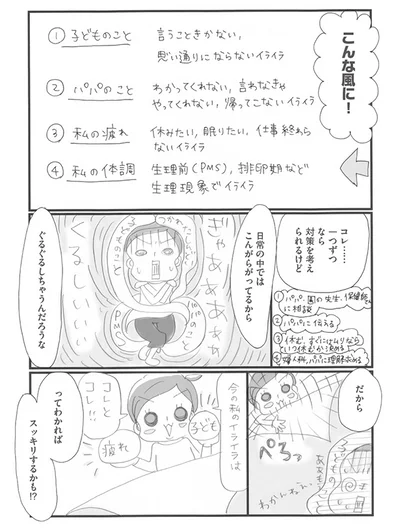 こんな風に！
① 子どものこと 言うこときかない,
思い通りにならないイライラ
② パパのこと わかってくれない, 言わなきゃ
やってくれない, 帰ってこないイライラ
③ 私の疲れ 休みたい, 眠りたい, 仕事終わら
ないイライラ
④ 私の体調 生理前(PMS), 排卵期など
生理現象でイライラ
コレ……
一つずつ
なら
対策を考え
られるけど
①パパ、園の先生、保健師
に相談
②パパに伝える
③休む、すぐにはムリなら
いつ休むか決める
④婦人科、パパに理解求める
日常の中では
こんがらがってるから
ぎゃあああああ
くるしいい
つかれたしんどい
子どものこと
パパのこと
PMS
ぐるぐるしちゃうんだろうな
だから
ぺろっ
子どものこと
わかんねー
今の私のイライラは
子ども
疲れ
コレと
コレ！
ってわかれば
スッキリするかも!?